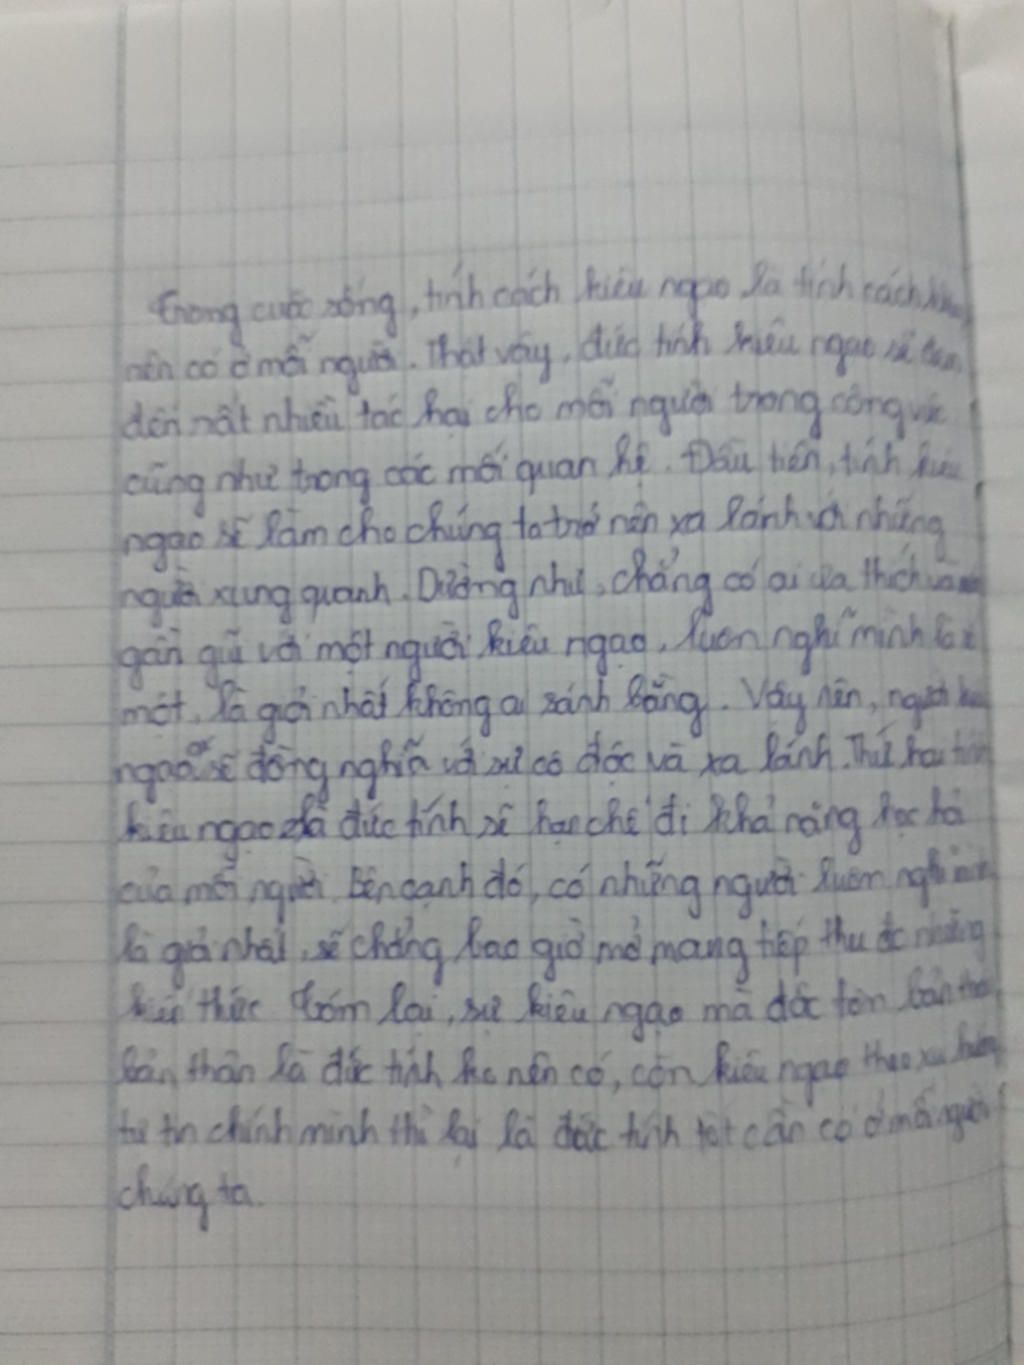 Trong cuộc sống, tính cách kiêu ngạo là tính cách không
nên có ở mỗi người. Thật vậy, đức tính kiêu ngạo sẽ đem
đến rất nhiều tác hại cho mỗi người trong công việc
cũng như trong các mối quan hệ. Đầu tiên, tính kiêu
ngạo sẽ làm cho chúng ta trở nên xa lánh với những
người xung quanh. Dường như, chẳng có ai ưa thích và
gần gũi với một người kiêu ngạo, luôn nghĩ mình là số
một, là giỏi nhất không ai sánh bằng. Vậy nên, người kiêu
ngạo sẽ đồng nghĩa với sự cô độc và xa lánh. Thứ hai tính
kiêu ngạo là đức tính sẽ hạn chế đi khả năng học hỏi
của mỗi người. Bên cạnh đó, có những người luôn nghĩ mình
là giỏi nhất, sẽ chẳng bao giờ mở mang tiếp thu đc những
kiến thức. Tóm lại, sự kiêu ngạo mà độc tôn bản thân
bản thân là đức tính ko nên có, còn kiêu ngạo theo xu hướng
tự tin chính mình thì lại là đức tính tốt cần có ở mỗi người
chúng ta.